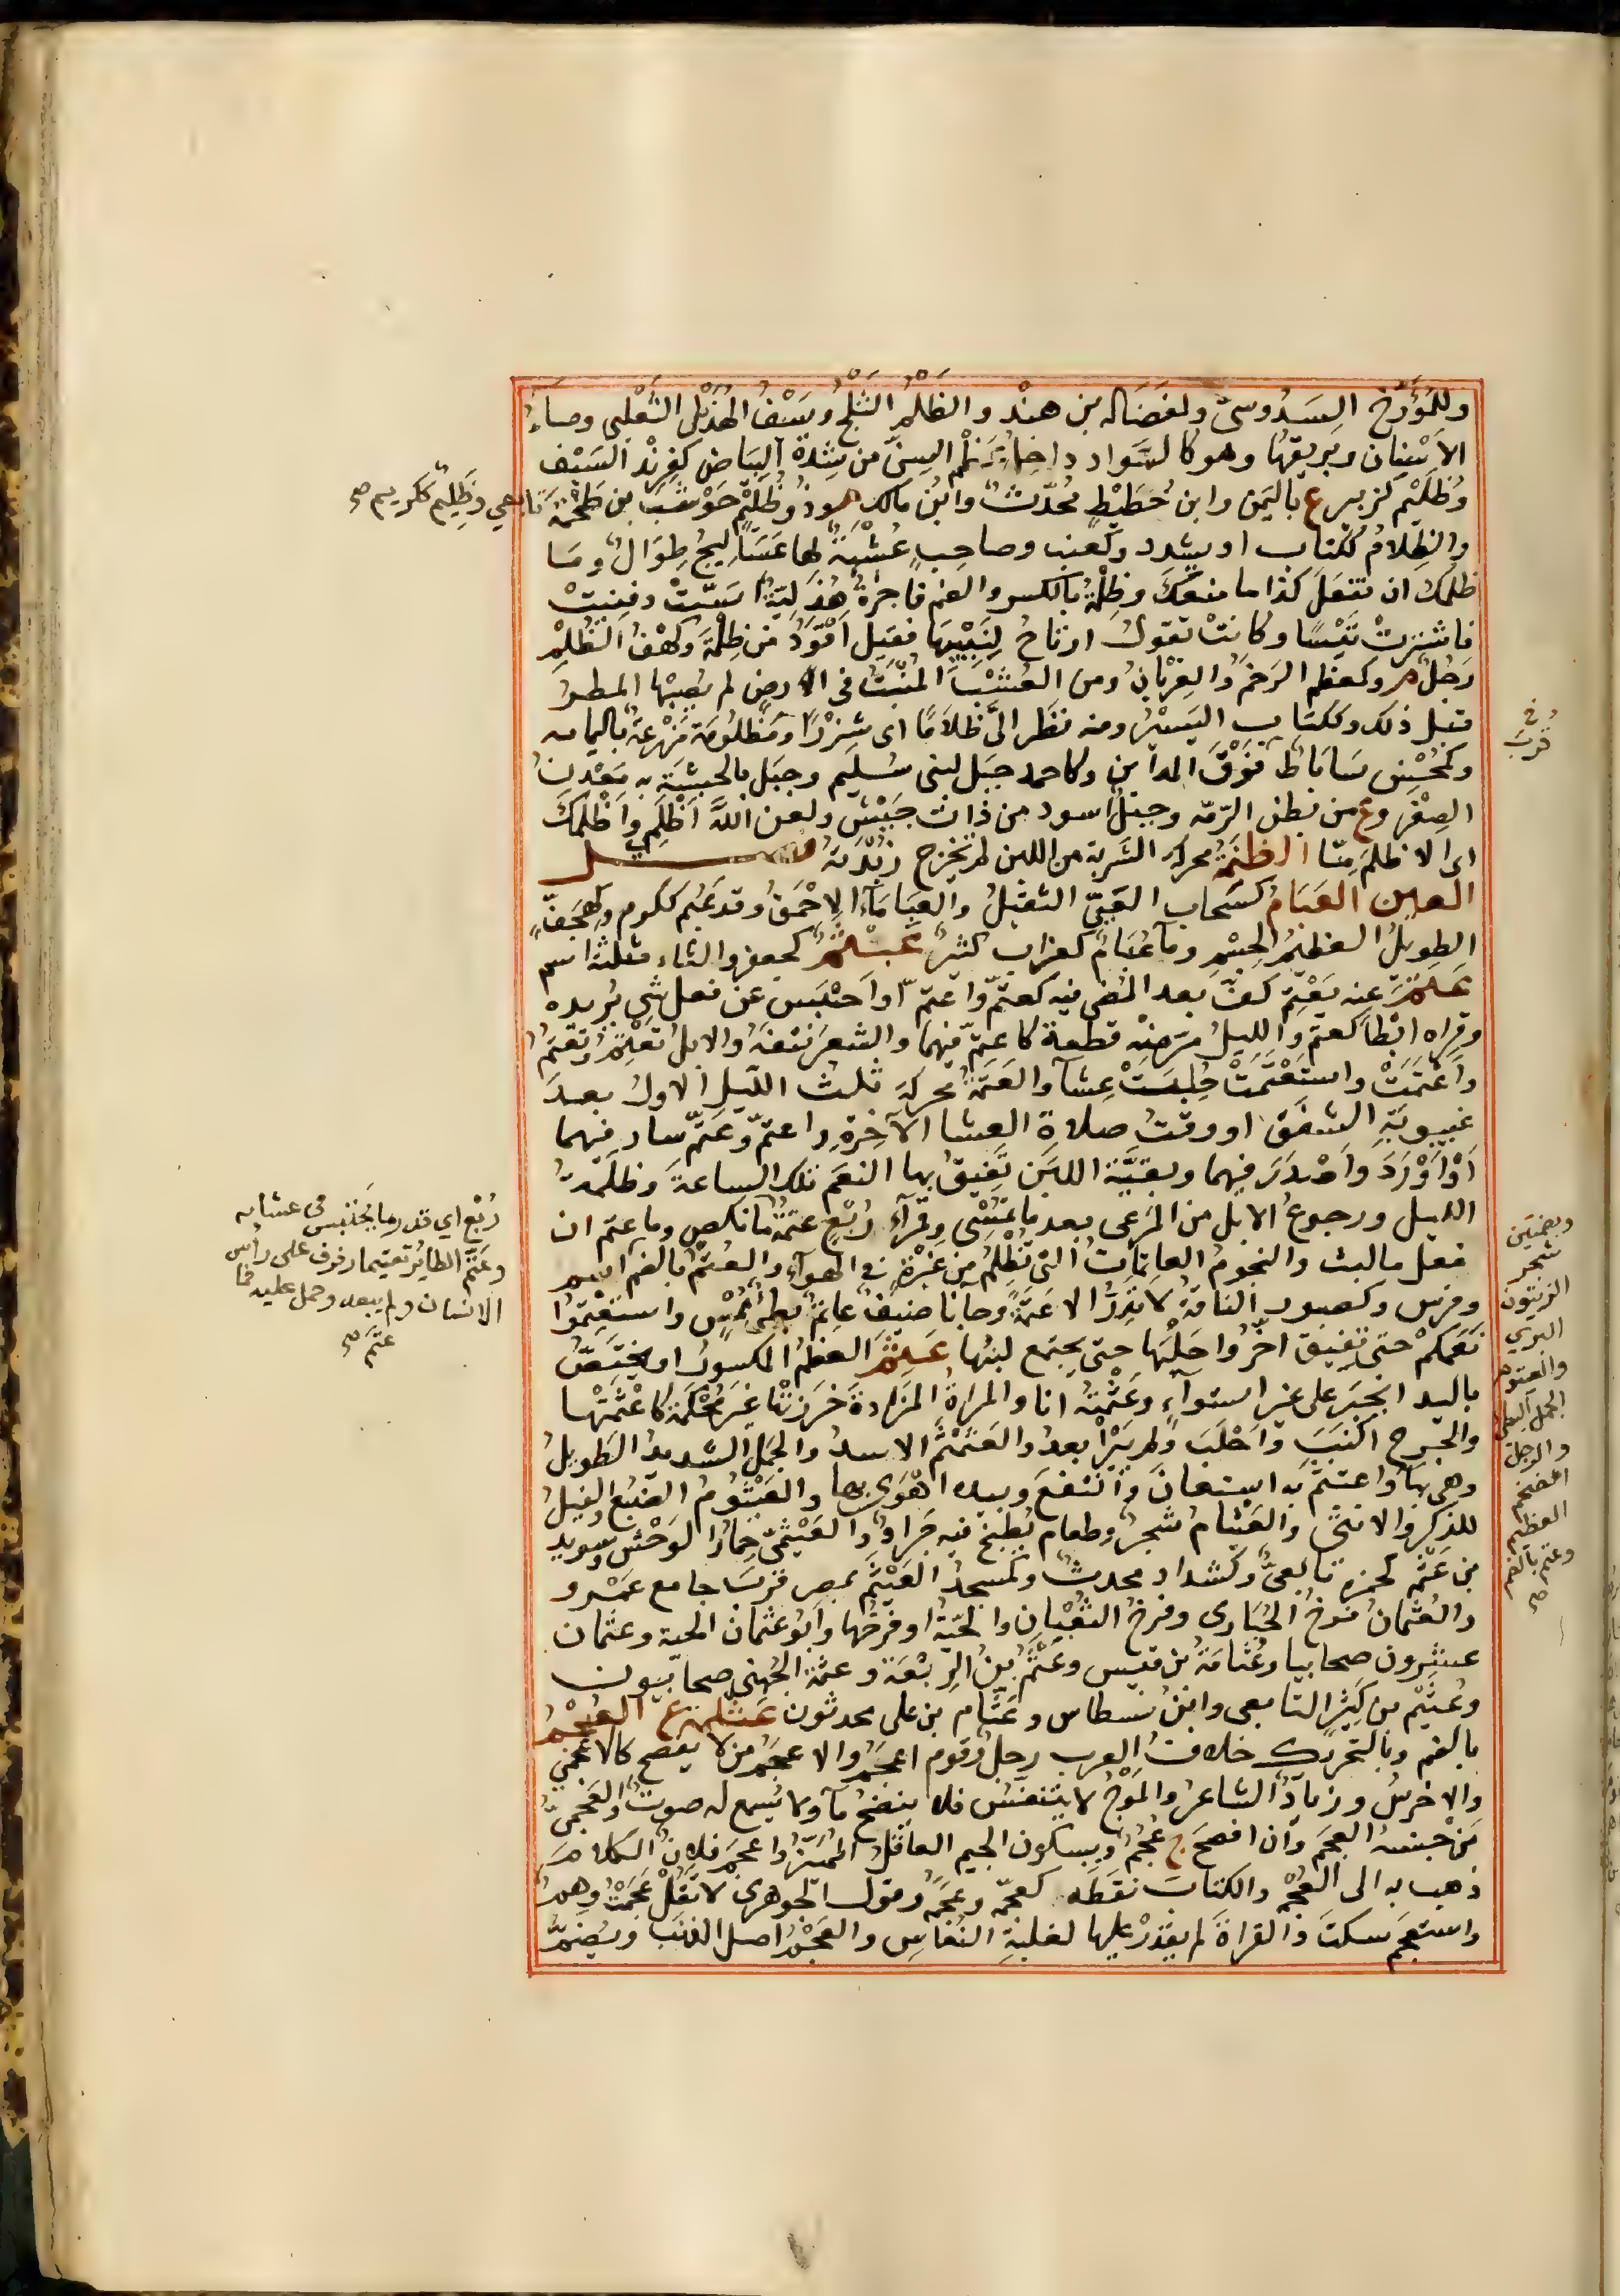 وللمُؤَرِّخ السَدُوسىّ ولفضَاله بن هنْد والظَلْمُ الثَلْجُ وسَيْفُ الهُذَيْل التَغْلبى وماءُ
الاَسْنان وبَريقُها وهو كالسَّواد داخِلَ عَظْمِ السِنّ من شِدّة البَياض كفِرِنْد السَيْف
وظُلَيْم كزبير ع باليَمَن وابن حُطَيْطٍ مُحَدِّثٌ وابنُ مالك م وذو ظُلَيْمٍ حَوْشَبُ بن طَخْمَةَ تابعي وظَلِيم ككريم صح
والظِلامُ ككتاب اويشدد وكعنب وصاحِبٍ عُشْبَةٌ لها عَسَالِيجُ طِوَالٌ ومَا
ظلمك ان تفعَلَ كذا ما منعَكَ وظِلْمَةُ بالكسر والضم فاجِرَةٌ هُذَلِيّةٌ اسَنّتْ وفنِيَتْ
فاشترتْ تَيْسًا وكانتْ تقولُ ارتاحُ لِنَبيبِها فقيل اَقْوَدُ من ظِلْمَةَ وكهْفُ الظُلْمِ
رَجُلٌ م وكمعظم الرَخَمُ والغِرْبانُ ومن العُشْبِ المُنْبَثُّ فى الارضِ لم يُصِبْها المطرُ
قبل ذلك وككتاب اليَسيرُ ومنه نظَر الىَّ ظِلامًا اى شَزْرًا ومَظلُومَة مَزْرعَةٌ باليمامه
وكمُحْسِن سَابَاط فَوْقَ المداين وكاحمد جبَل لبنى سُلَيم وجبَل بالحبشَة به مَعْدِنُ
الصِفْر وع من بطن الرّمّه وجبَلٌ اسود من ذات جَيْش ولعن اللهُ اَظْلَمِى واَظْلَمَكَ
اى الاظلَمَ مِنّا الظَنَمَةُ محركة الشَربة من اللبن لم تخرج زُبْدَتهُ فصل
العين العَبَامُ كسَحاب العَيِىّ الثقيلُ والعَبَامَاءُ الاحْمَقُ وقد عَبُم ككرم وكهجَفٍّ
الطويلُ العظيمُ الجِسْمِ ومآءٌ عُبَامٌ كغراب كثيرٌ عَبْثَمٌ كجعفر والثاء مثلثة اسم
عَتَمَ عنه يَعْتِمُ كفَّ بعد المُضىِ فيه كعتّم واَعتم او احتبَس عن فعل شئ يريده
وقِرَاه ابْطَأ كعتّم والليلُ مرّ منه قطعة كاعتم فيهما والشعرَ نتَفَهُ والابلُ تَعْتِمُ وتَعْتُمُ
واَعْتمَتْ واستَعْتَمَتْ حُلِبَتْ عِشاءً والعَتَمَةُ محركة ثلث الليل الاول بعدَ
غيبوبَةِ الشفَق او وقتُ صلاة العشا الآخِرةِ واعتمَ وعَتّمَ سار فيها
اَوْ اَوْرَدَ واَصْدَرَ فيها وبقيَّة اللبَن تُفِيقُ بها النعَم تلك الساعةَ وظلمةُ
الليل ورجوعُ الابل من المَرعى بعد ما تُمْسِى وقمرآءُ رُبْعٍ عتَمَةٌ مانكص وما عتّم ان
فعل مالبث والنجومُ العاتِمَاتُ التى تُظْلِمُ من غَبْرَةٍ فى الهوآء والعُتُمُ بالضم اسم
وفرَس وكصبور الناقة لا تَدِرُّ الا عَتَمَةً وجانا ضيفٌ عاتِمٌ بطئٌ مُمْسٍ واستَعْتِمُوا
نَعَمَكُم حتى تُفيق اَخّرُوا حَلْبَها حتى يجتمع لبنُها عَثَمَ العظمُ المكسورُ او يختصُّ
باليد انجَبَر على غير استوآءٍ وعَثَمْتهُ انا والمراةُ المَزَادةَ خَرَزتْها غيرَ مُحْكَمَة كاعْثَمَتْها
والجرحُ اكْنَبَ واَجْلَبَ ولم يَبْرَأ بعدُ والعَثَمْثَمُ الاسدُ والجَمَلُ الشديدُ الطويلُ
وهى بهاءٍ واعتثم به استعانَ وانْتفعَ وبيده اَهْوَى بها والعَيْثُومُ الضَبُعُ والفيلُ
للذكر والانثى والعَيْثامُ شجرٌ وطعام يُطبخُ فيه جَرادٌ والعَيْثَمِىّ حِمارُ الوَحْش وسويد
بن عَثْمةَ كحمزه تابعىٌّ وكشدّاد محدثٌ ومَسجدُ العَيْثَم بمصر قربَ جامع عَمْرو
والعُثْمَانُ فَرْخُ الحُبَارى وفرخُ الثُعْبانِ والحَيّةُ او فَرخُها وابُو عُثْمان الحية وعثمان
عشرون صحابيا وعُثَامَةُ بن قيس وعَثْمُ بن الرِبْعَة وعثمة الجُهَنى صحابيون
وعُثَيْم بن كثِيرٍ التابعى وابنُ نسطاس وعَثّام بن على محدثون عَثْلَمَةُ ع العُجْمُ
بالضم وبالتحريك خلافُ العرب رجلٌ وقوم اعجَمُ والاعجمُ من لا يفصح كالاعجمىّ
والاخرسُ وزيادٌ الشاعرُ والمَوْجُ لا يتنفسُ فلا ينضحُ مآءً ولا يُسمع له صوتٌ والعَجمىُّ
مَنْ جنسُه العجَمُ وان افصحَ ج عُجْمٌ وبسكون الجيم العاقلُ المُمَيِّزُ واَعجمَ فلانٌ الكلامَ
ذهب به الى العُجْمَةِ والكتابَ نقَطَه كعجَمَه وعَجَّمَهُ وقول الجوهرى لا تَقُلْ عَجَمْتُ وهمٌ
واستعجم سكتَ والقراةَ لم يقدرْ عليها لغلبَةِ النُعَاسِ والعَجْمُ اصل الذنَب ويُضَمُّ
فى
قرب
رُبْع اي قدر ما يَحتبس فى عشايه
وعَتّم الطايُر تعتيما رفرف على رأس
الانسان ولم يبعد وحمل عليه فما
عتّم صح
وبضمتين
شجر
الزيتون
البري
والعتوم
الجمل البطئ
والرجل
الضخم
العظيم
وعتم بالضم
صح